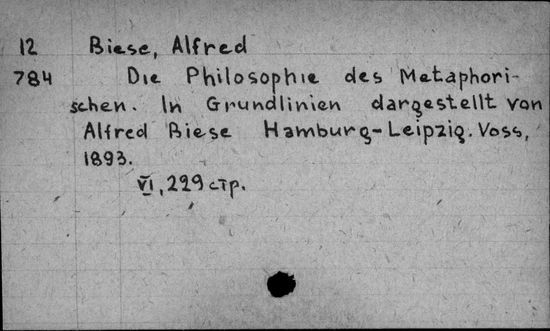 12 Biese, Alfred
784 Die Philosophie des Metaphori-
schen. In Grundlinien dargestellt von
Alfred Biese Hamburg-Leipzig. Voss,
1893.
VI, 229 стр.